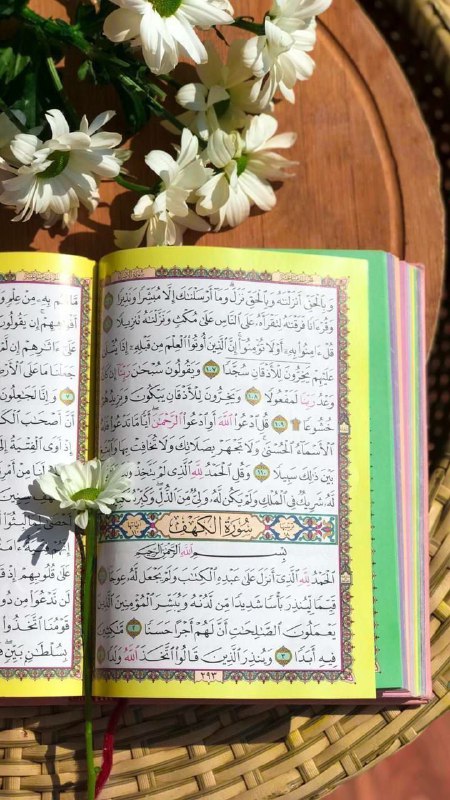 وَبِٱلْحَقِّ أَنزَلْنَٰهُ وَبِٱلْحَقِّ نَزَلَ ۗ وَمَآ أَرْسَلْنَٰكَ إِلَّا مُبَشِّرًا وَنَذِيرًا
وَقُرْءَانًا فَرَقْنَٰهُ لِتَقْرَأَهُۥ عَلَى ٱلنَّاسِ عَلَىٰ مُكْثٍ وَنَزَّلْنَٰهُ تَنزِيلًا
قُلْ ءَامِنُوا۟ بِهِۦٓ أَوْ لَا تُؤْمِنُوٓا۟ ۚ إِنَّ ٱلَّذِينَ أُوتُوا۟ ٱلْعِلْمَ مِن قَبْلِهِۦٓ إِذَا يُتْلَىٰ
عَلَيْهِمْ يَخِرُّونَ لِلْأَذْقَانِ سُجَّدًا ١٠٧ وَيَقُولُونَ سُبْحَٰنَ رَبِّنَآ إِن كَانَ
وَعْدُ رَبِّنَا لَمَفْعُولًا ١٠٨ وَيَخِرُّونَ لِلْأَذْقَانِ يَبْكُونَ وَيَزِيدُهُمْ
خُشُوعًا ۩ ١٠٩ قُلِ ٱدْعُوا۟ ٱللَّهَ أَوِ ٱدْعُوا۟ ٱلرَّحْمَٰنَ ۖ أَيًّا مَّا تَدْعُوا۟ فَلَهُ
ٱلْأَسْمَآءُ ٱلْحُسْنَىٰ ۚ وَلَا تَجْهَرْ بِصَلَاتِكَ وَلَا تُخَافِتْ بِهَا وَٱبْتَغِ
بَيْنَ ذَٰلِكَ سَبِيلًا ١١٠ وَقُلِ ٱلْحَمْدُ لِلَّهِ ٱلَّذِى لَمْ يَتَّخِذْ وَلَدًا وَلَمْ يَكُن
لَّهُۥ شَرِيكٌ فِى ٱلْمُلْكِ وَلَمْ يَكُن لَّهُۥ وَلِىٌّ مِّنَ ٱلذُّلِّ ۖ وَكَبِّرْهُ تَكْبِيرًۢا
سُورَةُ ٱلْكَهْفِ
بِسْمِ ٱللَّهِ ٱلرَّحْمَٰنِ ٱلرَّحِيمِ
ٱلْحَمْدُ لِلَّهِ ٱلَّذِىٓ أَنزَلَ عَلَىٰ عَبْدِهِ ٱلْكِتَٰبَ وَلَمْ يَجْعَل لَّهُۥ عِوَجَا
قَيِّمًا لِّيُنذِرَ بَأْسًا شَدِيدًا مِّن لَّدُنْهُ وَيُبَشِّرَ ٱلْمُؤْمِنِينَ ٱلَّذِينَ
يَعْمَلُونَ ٱلصَّٰلِحَٰتِ أَنَّ لَهُمْ أَجْرًا حَسَنًا ٢ مَّٰكِثِينَ
فِيهِ أَبَدًا ٣ وَيُنذِرَ ٱلَّذِينَ قَالُوا۟ ٱتَّخَذَ ٱللَّهُ وَلَدًا
٢٩٣
مَّا لَهُم بِهِۦ مِنْ عِلْمٍ
أَفْوَٰهِهِمْ ۚ إِن يَقُولُونَ
عَلَىٰٓ ءَاثَٰرِهِمْ إِن
جَعَلْنَا مَا عَلَى
وَإِنَّا لَجَٰعِلُونَ
أَنَّ أَصْحَٰبَ
إِذْ أَوَى ٱلْفِتْيَةُ إِلَى
لَنَا مِنْ أَمْرِنَا
سِنِينَ
أَحْصَىٰ لِمَا لَبِثُوٓا۟
عَلَىٰ قُلُوبِهِمْ إِذْ
لَن نَّدْعُوَا۟ مِن
قَوْمُنَا ٱتَّخَذُوا۟
بِسُلْطَٰنٍۭ بَيِّنٍ